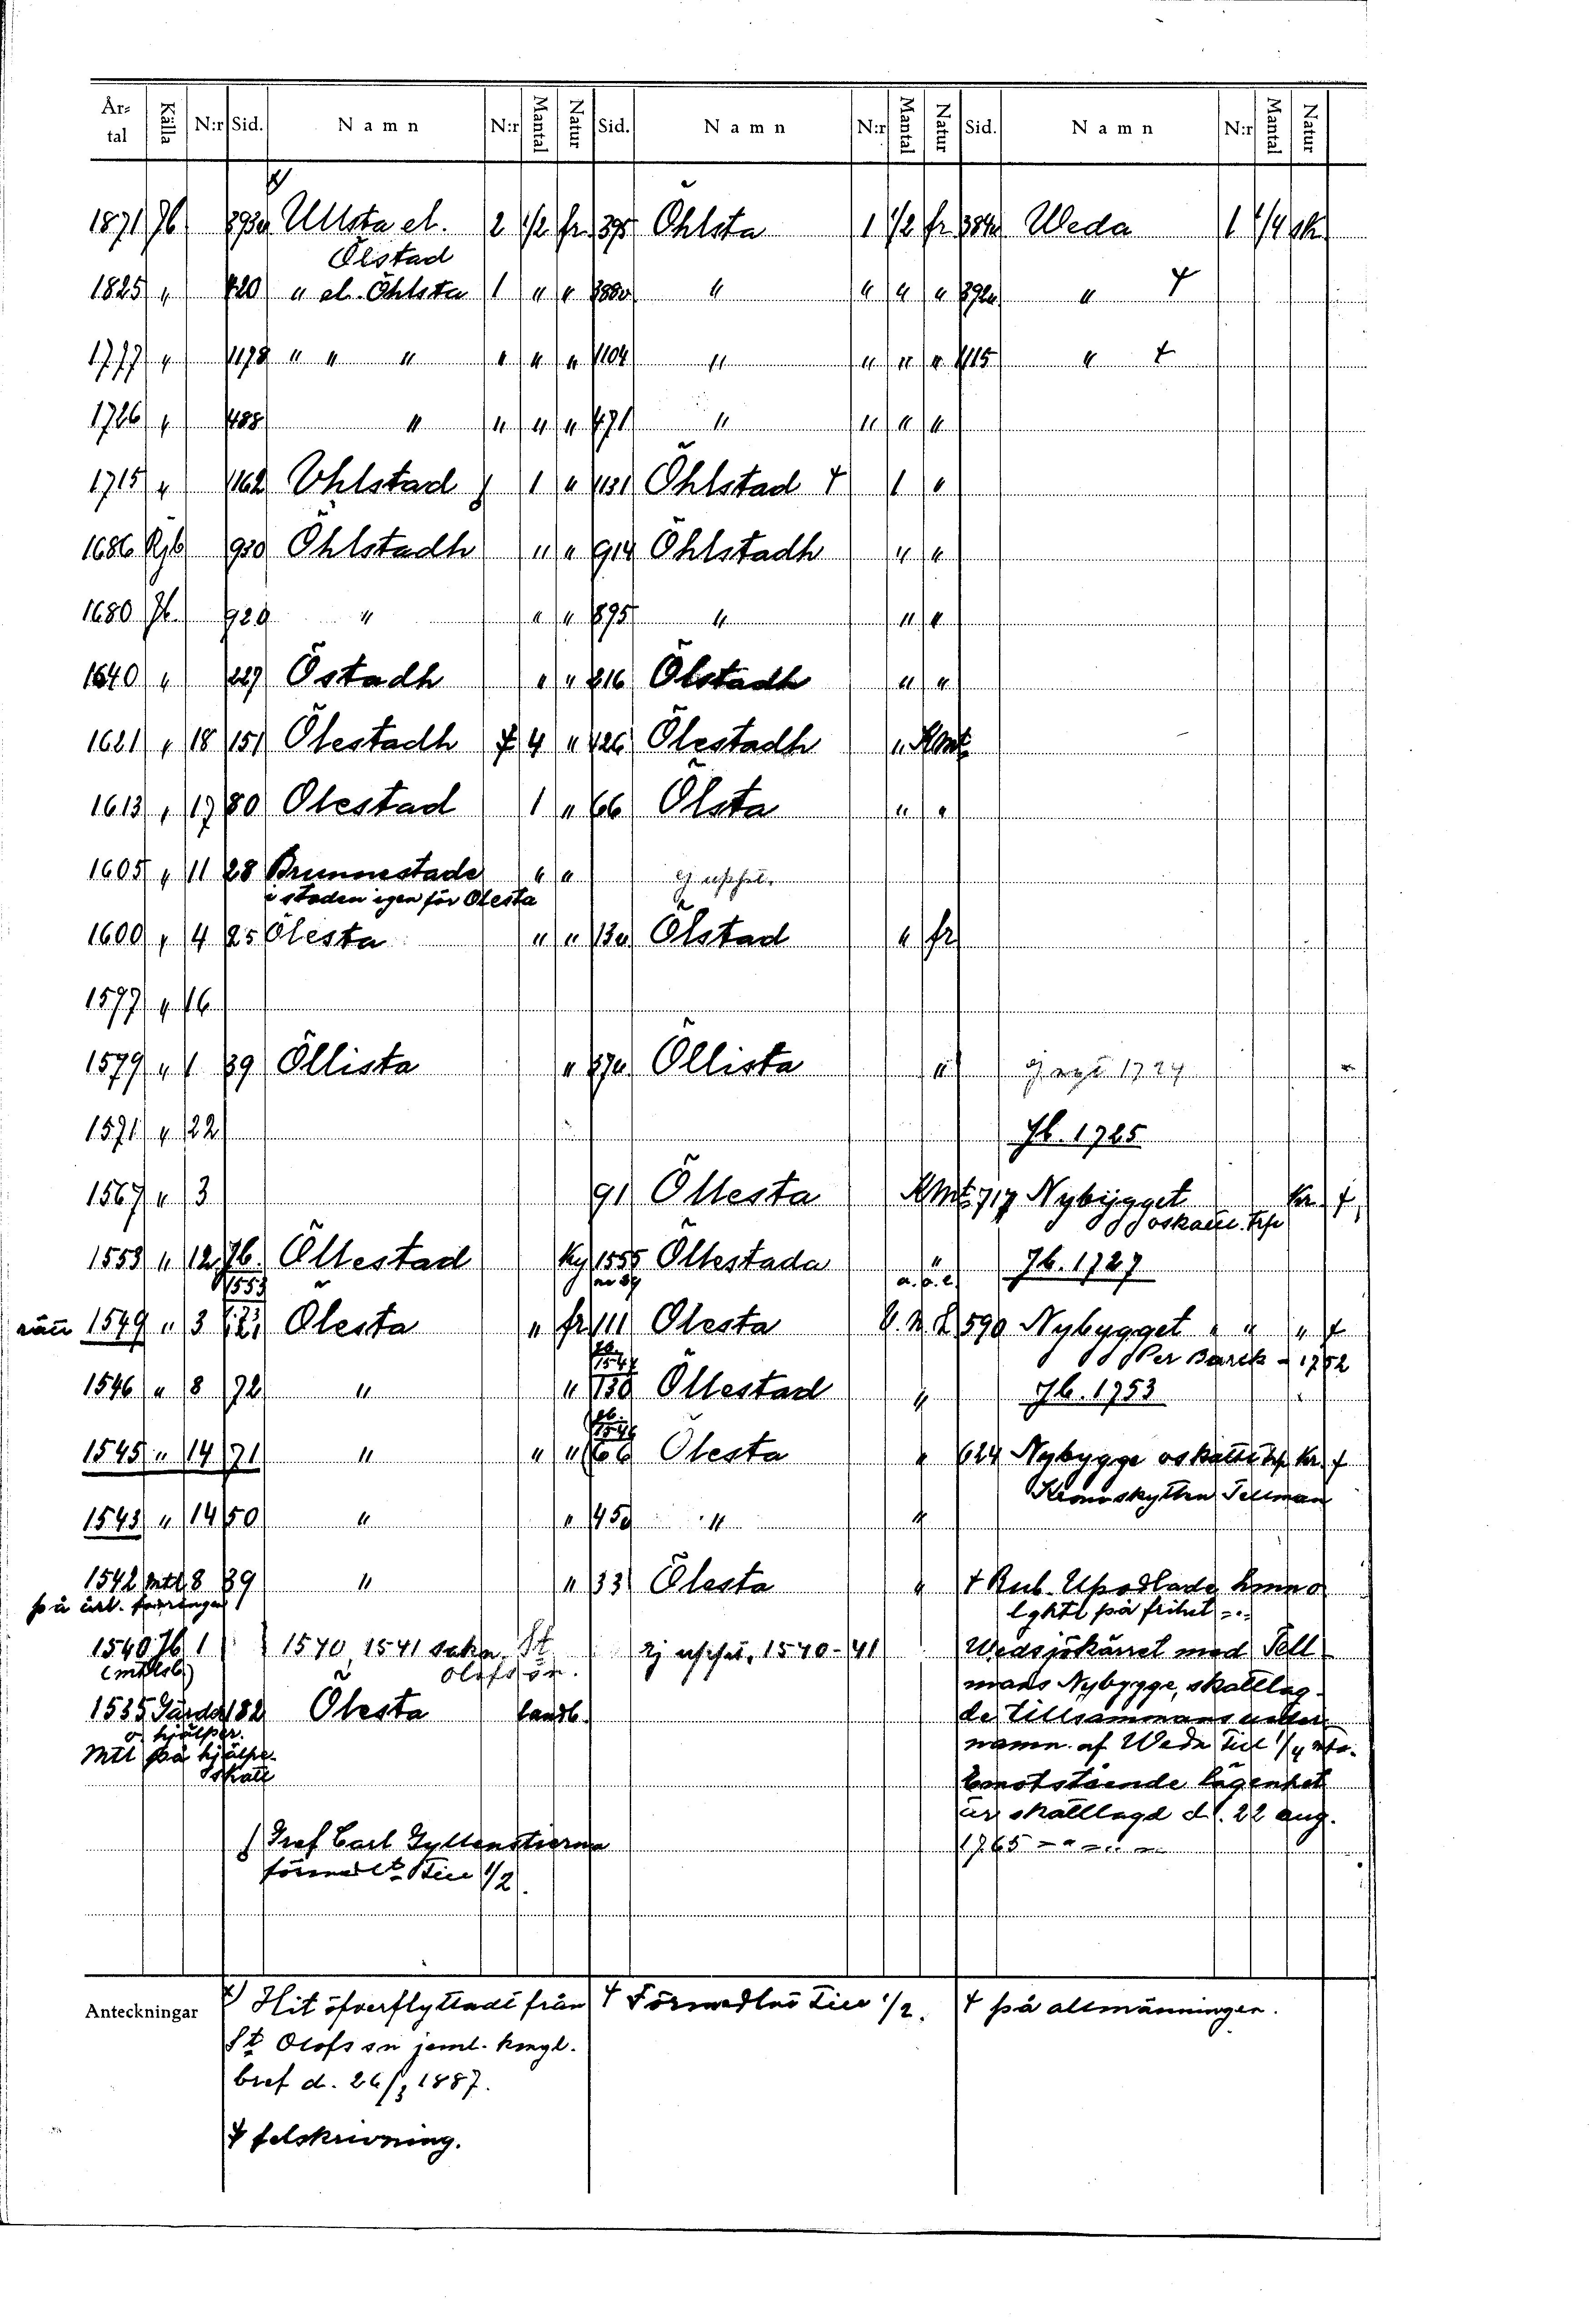 År-tal Källa N:r Sid. Namn N:r Mantal Natur Sid. Namn N:r Mantal Natur Sid. Namn N:r Mantal Natur
1871 Jb 393a Ullsta el. 2 1/2 fr. 395 Öhlsta 1 1/2 fr 384a Weda 1 1/4 sk
Ölstad
1825 " 420 " el. Öhlsta 1 " " 388a " " " " 392a " †
1777 " 1178 " " " " " " 1104 " " " " 1115 " †
1726 " 488 " " " " 471 " " " "
1715 " 1162 Uhlstad 1 " 1131 Öhlstad † 1 "
1686 Rjb 930 Öhlstadh " " 914 Öhlstadh " "
1680 Jb. 920 " " " 895 " " "
1640 " 227 Östadh " " 216 Ölstadh " "
1621 " 18 151 Ölestadh † 4 " 126 Ölestadh " KMt
1613 " 17 80 Olestad 1 " 66 Ölsta " "
1605 " 11 28 Brunnestade " " ej uppt.
i staden igen för Olesta
1600 " 4 25 Ölesta " " 13a Ölstad " fr
1597 " 16
1579 " 1 39 Öllista " 37a Öllista "
1571 " 22 Jb. 1725
1567 " 3 91 Öllesta KMt 717 Nybygget Kr. †
oskatt. trp
1553 " 12 Jb. Öllestad Ky 1555 Öllestada " Jb. 1727
1553 nr 39 a. o. e.
rätt 1549 " 3 121 Ölesta " fr 111 Olesta 590 Nybygget " " " †
Jb. 1547 Per Barck - 1752
1546 " 8 72 " " 130 Öllestad " Jb. 1753
Jb. 1546
1545 " 14 71 " " " 66 Ölesta " 624 Nybygge oskatt trp Kr. †
Kronoskytten Tellman
1543 " 14 50 " " 45a " "
1542 Mtl 8 39 " " 33 Ölesta " † Rub. Upodlade hmn o
på årl. lghtr på frihet
1540 Jb 1 1540, 1541 sakn. St Ej uppt. 1540-41 Wedsjökärret med Tell
Olofs sn. mans Nybygge, skattlag
1535 Gärder 182 Ölesta landb. de tillsammans under
o. hjälper. namn af Weda till 1/4 mtl.
Mtl på hjälpe- Emotstående lägenhet
skatt är skattlagd d. 22 aug.
Gref Carl Gyllenstierna 1765
förmedlt till 1/2.
Anteckningar Hit öfverflyttadt från † Förmedlad till 1/2. † på allmänningen.
St Olofs sn jeml. kongl.
bref d. 26/3 1887.
† felskrivning.